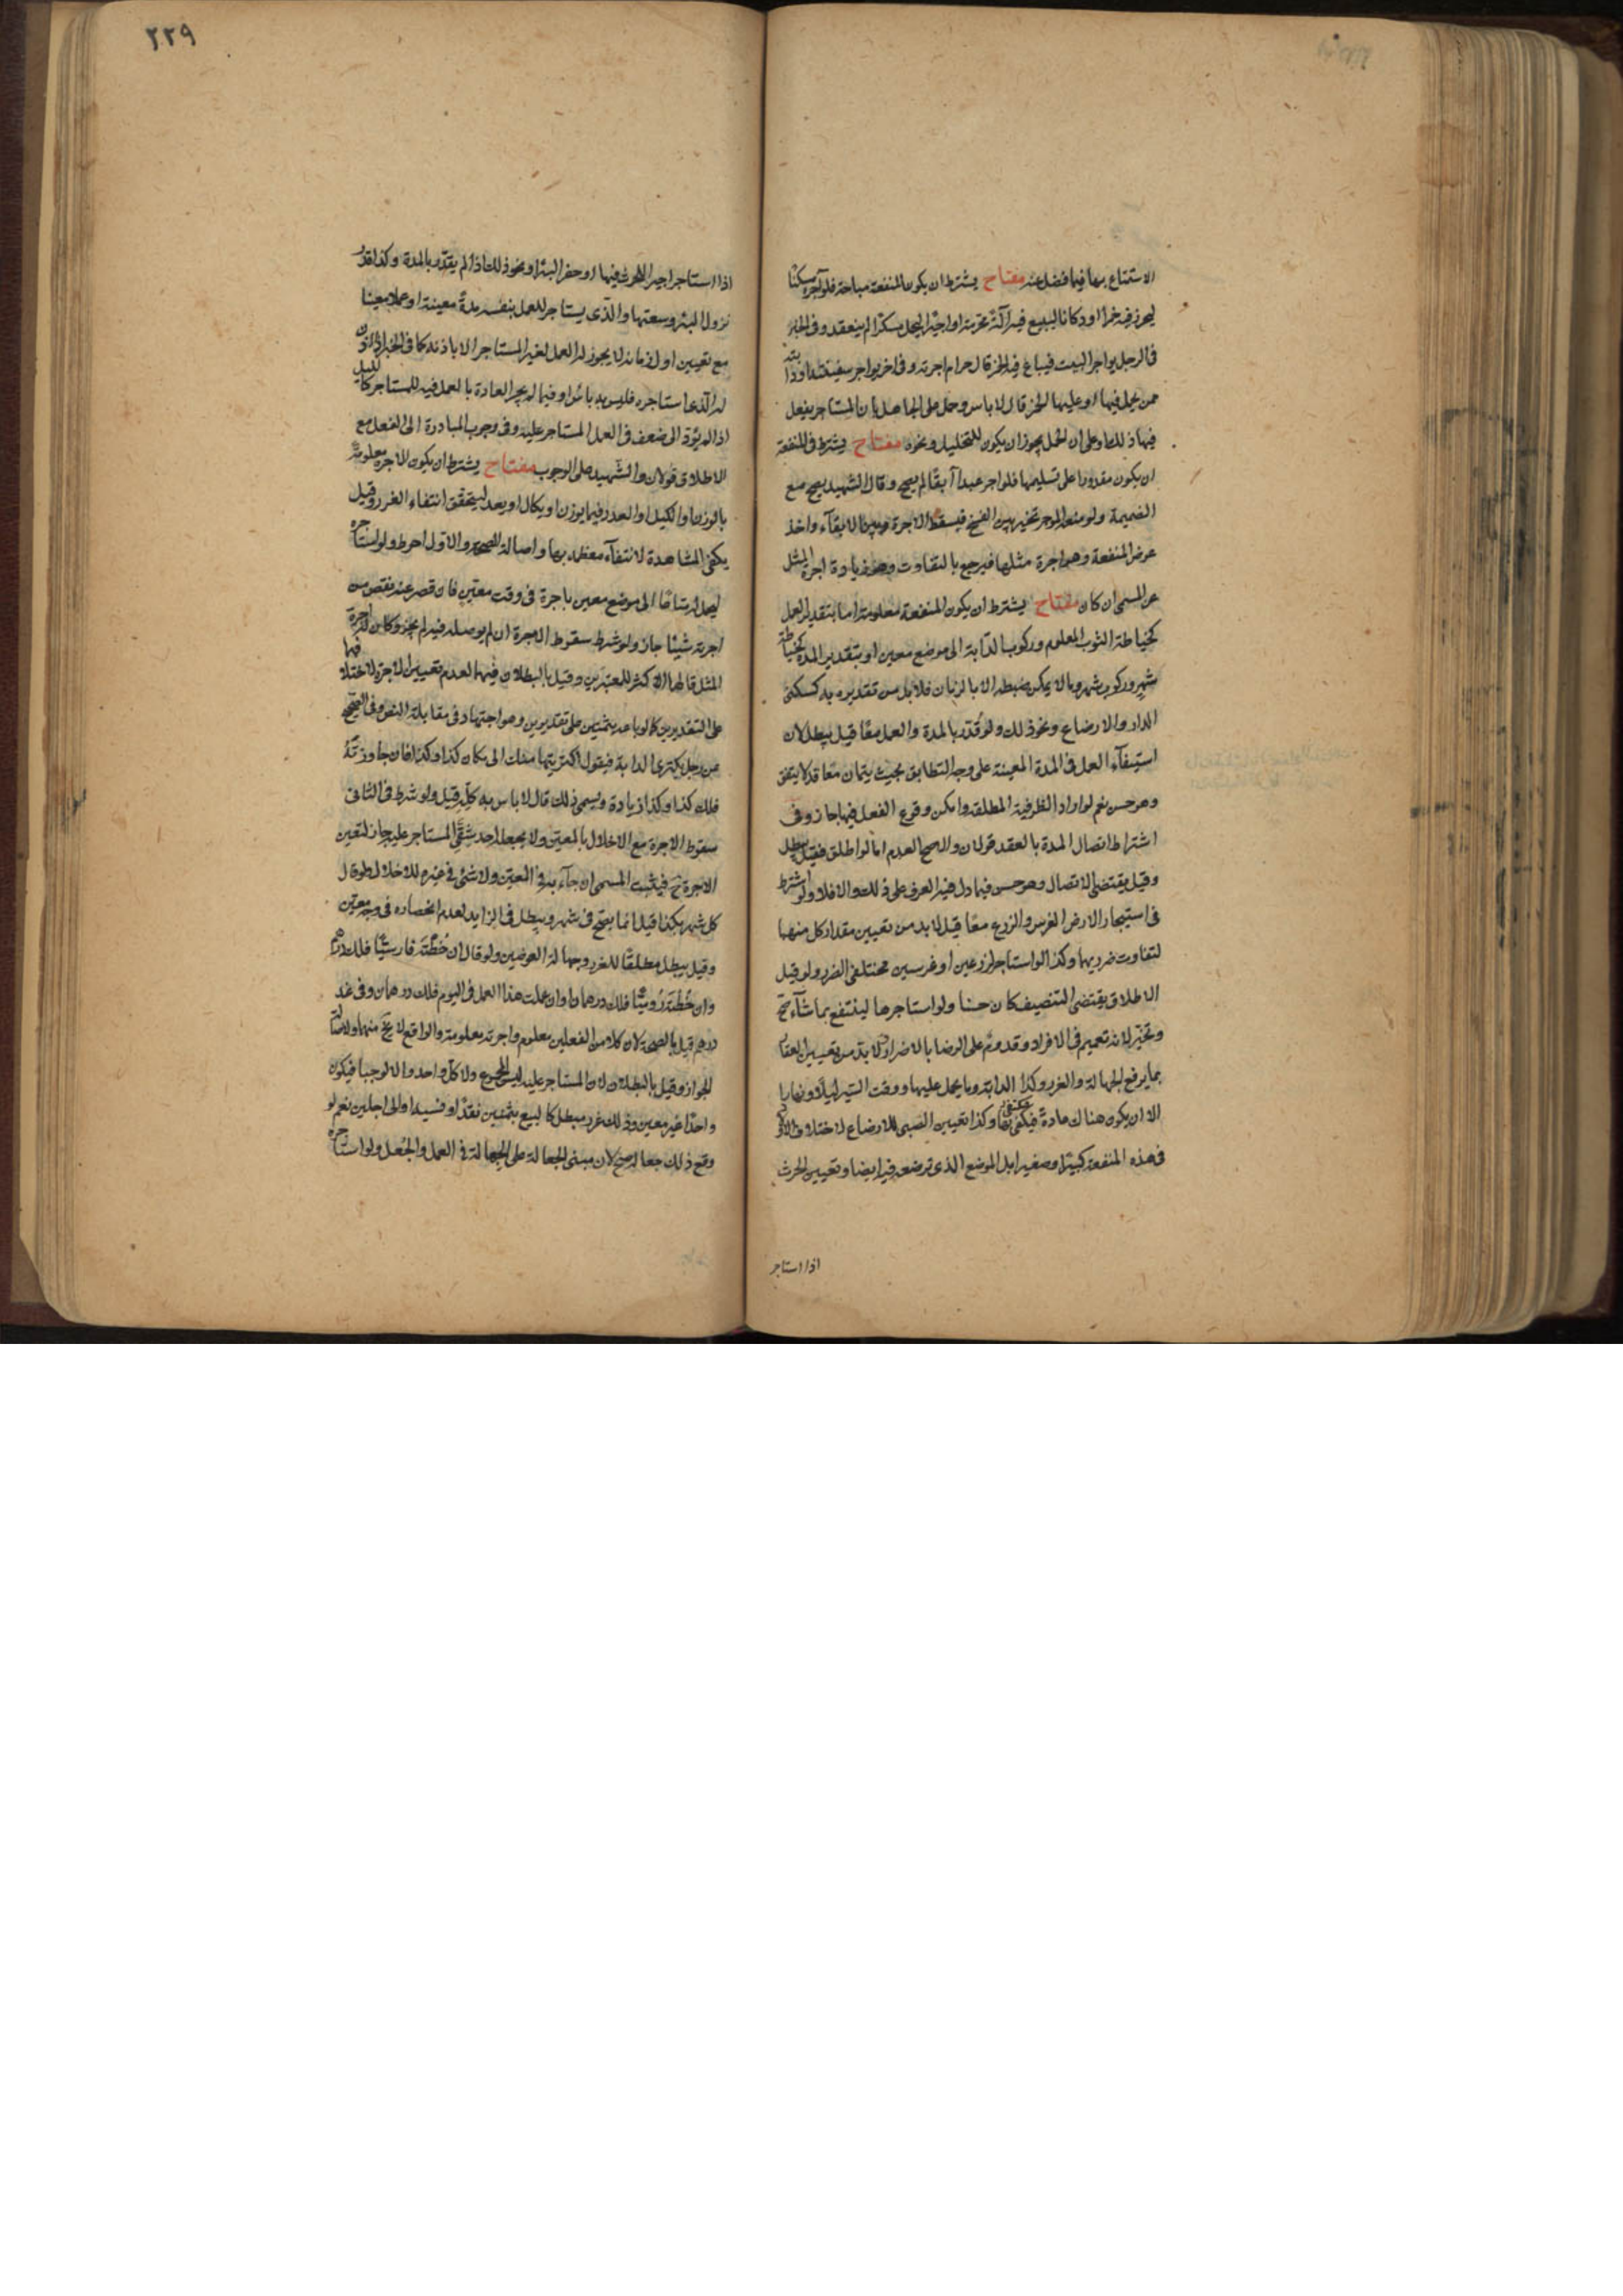 الاستمتاع بها فيما فضل عنه مفتاح يشترط ان يكون المنفعة مباحة فلو آجره مسكنا
ليحرز فيه خمرا او دكانا ليبيع فيه آلة محرمة او اجيرا ليحمل مسكرا لم ينعقد وفي الخبر
في الرجل يواجر البيت فيباع فيه الخمر قال حرام اجرته وفي اخر يواجر سفينته او دابته
ممن يحمل فيها او عليها الخمر قال لا باس وحمل على الجاهل بان المستاجر يفعل
فيها ذلك او على ان الحمل يجوز ان يكون للتخليل ونحوه مفتاح يشترط في المنفعة
ان يكون مقدورا على تسليمها فلو اجر عبدا آبقا لم يصح وقال الشهيد يصح مع
الضميمة ولو منعه الموجر تخير بين الفسخ فيسقط الاجرة وبين الابقآء واخذ
عوض المنفعة وهو اجرة مثلها فيرجع بالتفاوت وهو زيادة اجرة المثل
عن المسمى ان كان مفتاح يشترط ان يكون المنفعة معلومة اما بتقدير العمل
كخياطة الثوب المعلوم وركوب الدابة الى موضع معين او بتقدير المدة كخياطة
شهر وركوب شهر وما لا يمكن ضبطه الا بالزمان فلا بد من تقديره به كسكنى
الدار والارضاع ونحو ذلك ولو قدر بالمدة والعمل معا قيل يبطل لان
استيفآء العمل في المدة المعينة على وجه التطابق بحيث يتمان معا قد لا يتفق
وهو حسن نعم لو اراد الظرفية المطلقة وامكن وقوع الفعل فيها جاز وفي
اشتراط اتصال المدة بالعقد قولان والاصح العدم اما لو اطلق فقيل يبطل
وقيل يقتضي الاتصال وهو حسن فيما دل فيه العرف على ذلك والا فلا ولو اشترط
في استيجار الارض الغرس والزرع معا قيل لا بد من تعيين مقدار كل منهما
لتفاوت ضرريهما وكذا لو استاجر لزرعين او غرسين مختلفي الضرر ولو قيل
الاطلاق يقتضي التنصيف كان حسنا ولو استاجرها لينتفع بما شآء صح
وتخير لانه تعميم في الافراد وقدوم على الرضا بالاضرار ولا بد من تعيين العقار
بما يرفع الجهالة والغرر وكذا الدابة وما يحمل عليها ووقت السير ليلا ونهارا
الا ان يكون هناك عادة فيكتفى بها وكذا تعيين الصبي للارضاع لاختلاف
في هذه المنفعة كبيرا وصغيرا بل الموضع الذي ترضعه فيه ايضا وتعيين الحرث
اذا استاجر
٢٢٩
اذا استاجر اجيرا للحرث فيها او حفر البئر او نحو ذلك اذا لم يقدر بالمدة وكذا قدر
نزول البئر وسعتها والذي يستاجر للعمل بنفسه مدة معينة او عملا معينا
مع تعيين اول زمانه لا يجوز له العمل لغير المستاجر الا باذنه كما في الخبر فان اذن
له الذي استاجره فليس به باس او فيما لم يجر العادة بالعمل فيه للمستاجر كالليل
اذا لم يؤد الى ضعف في العمل المستاجر عليه وفي وجوب المبادرة الى الفعل مع
الاطلاق قولان والشهيد على الوجوب مفتاح يشترط ان يكون الاجرة معلومة
بالوزن او الكيل او العدد فيما يوزن او يكال او يعد ليتحقق انتفاء الغرر وقيل
يكفي المشاهدة لانتفآء معظمه بها واصالة الصحة والاول احوط ولو استاجره
ليحمل له متاعا الى موضع معين باجرة في وقت معين فان قصر عنه نقص من
اجرته شيئا جاز ولو شرط سقوط الاجرة ان لم يوصله فيه لم يجز وكان له اجرة
المثل قالها الاكثر للمعتبرين وقيل بالبطلان فيهما لعدم تعيين الاجرة لاختلافها
على التقديرين كما لو باعه بثمنين على تقديرين وهو اجتهاد في مقابلة النص وفي الصحيح
عن رجل يكتري الدابة فيقول اكتريتها منك الى مكان كذا وكذا فان جاوزته
فلك كذا وكذا زيادة ويسمي ذلك قال لا باس به كله قيل ولو شرط في الثاني
سقوط الاجرة مع الاخلال بالمعين ولا يجعله احد شقي المستاجر عليه جاز لتعين
الاجرة ح فيثبت المسمى ان جآء به في المعين ولا شئ في غيره للاخلال ولو قال
كل شهر بكذا قيل انما يصح في شهر ويبطل في الزايد لعدم انحصاره في وجه معين
وقيل يبطل مطلقا للغرر وجهالة العوضين ولو قال ان خطته فارسيا فلك درهم
وان خطته روميا فلك درهمان او ان عملت هذا العمل في اليوم فلك درهمان وفي غد
درهم قيل بالصحة لان كلا من الفعلين معلوم واجرته معلومة والواقع لا يخ منهما ولاصالة
الجواز وقيل بالبطلان لان المستاجر عليه ليس المجموع ولا كل واحد والا لوجبا فيكون
واحدا غير معين وذلك غرر مبطل كالبيع بثمنين نقدا ونسيه او الى اجلين نعم لو
وقع ذلك جعالة صح لان مبنى الجعالة على الجهالة في العمل والجعل ولو استاجره